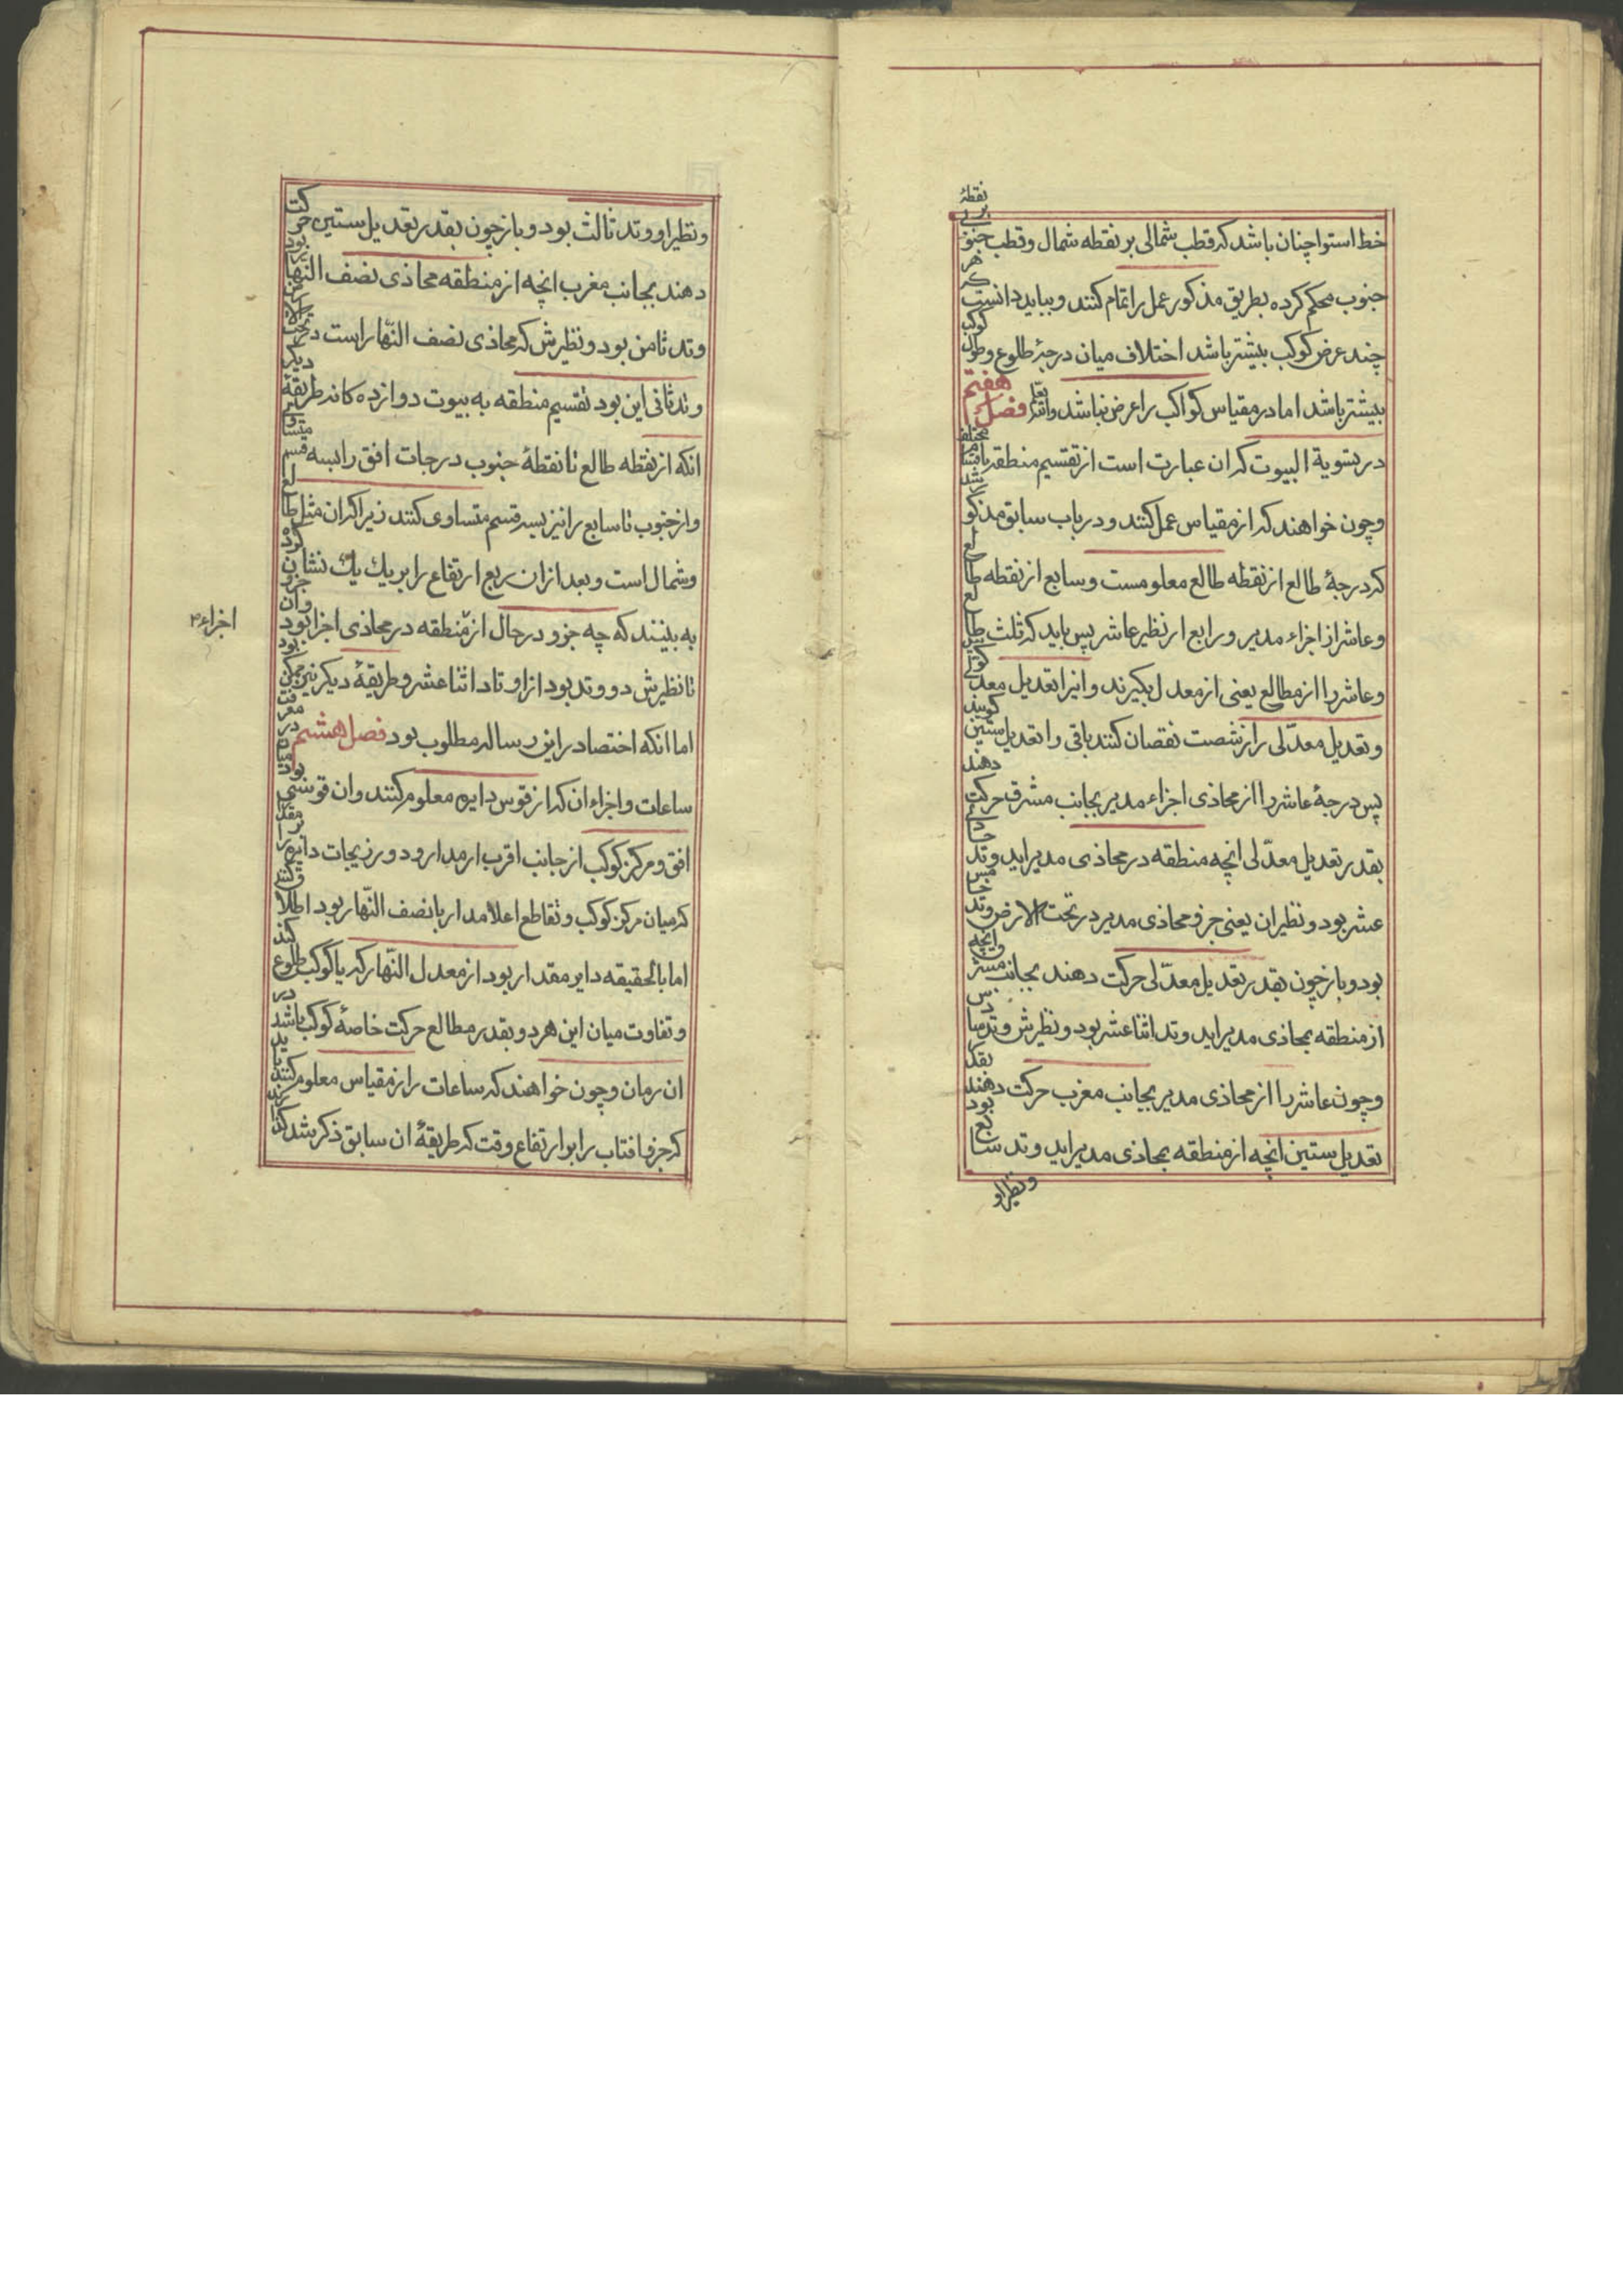 خط استوا چنان باشد که قطب شمالی بر نقطه شمال و قطب جنوبی بر نقطهٔ
جنوب محکم کرده بطریق مذکور عمل را تمام کنند و بباید دانست که هر
چند عرض کوکب بیشتر باشد اختلاف میان درجهٔ طلوع و طول کوکب
بیشتر باشد اما در مقیاس کواکب را عرض نباشد والله فصل هفتم
در تسویة البیوت که ان عبارت است از تقسیم منطقه باقسام مختلف
و چون خواهند که از مقیاس عمل کنند و در باب سابق مذکور شد
که درجهٔ طالع از نقطه طالع معلومست و سابع از نقطه طالع
و عاشر از اجزاء مدیر و رابع از نظیر عاشر پس باید که ثلث طالع
و عاشر را از مطالع یعنی از معدل بگیرند و انرا تعدیل معدلی
و تعدیل معدّلی را از شصت نقصان کنند باقی را تعدیل ستین گویند
پس درجهٔ عاشر را از محاذی اجزاء مدیر بجانب مشرق حرکت دهند
بقدر تعدیل معدّلی انچه منطقه در محاذی مدیر اید وتد حادی
عشر بود و نظیر ان یعنی جزو محاذی مدیر در تحت الارض وتد خامس
بود و باز چون بقدر تعدیل معدّلی حرکت دهند بجانب مشرق وانچه
از منطقه بمحاذی مدیر اید وتد اثنا عشر بود و نظیرش وتد سادس
و چون عاشر را از محاذی مدیر بجانب مغرب حرکت دهند بقدر
تعدیل ستین انچه از منطقه بمحاذی مدیر اید وتد سابع بود
و نظیر او
و نظیر او وتد ثالث بود و باز چون بقدر تعدیل ستین حرکت
دهند بجانب مغرب انچه از منطقه محاذی نصف النهار بود
وتد ثامن بود و نظیرش که محاذی نصف النّهار است در تحت الارض
وتد ثانی این بود تقسیم منطقه به بیوت دوازده کانه طریقهٔ دیکر
انکه از نقطه طالع تا نقطهٔ جنوب درجات افق را بسه قسم متساوی
و از جنوب تا سابع را نیز بسه قسم متساوی کنند زیرا که ان مثل طالع
و شمال است و بعد از ان ربع ارتفاع را بر یک یک نشان کرده
به بینند که چه جزو در حال از منطقه در محاذی اجزا بود وان جزو
تا نظیرش دو وتد بود از اوتاد اثنا عشر و طریقهٔ دیکر نیز ممکن بود
اما انکه اختصار در این رساله مطلوب بود فصل هشتم در معرفت
ساعات و اجزاء ان که از قوس دایره معلوم کنند وان قوسی بود میان
افق و مرکز کوکب از جانب اقرب از مدار او و در زیجات دایره را بر مقداری
که میان مرکز کوکب و تقاطع اعلا مدار با نصف النّهار بود اطلاق کنند
اما بالحقیقه دایر مقدار بود از معدل النّهار که با کوکب طلوع کند
و تفاوت میان این هر دو بقدر مطالع حرکت خاصهٔ کوکب باشد در
ان زمان و چون خواهند که ساعات را از مقیاس معلوم کنند باید
که جزو افتاب را بر ارتفاع وقت که طریقهٔ ان سابق ذکر شد
اجزاء